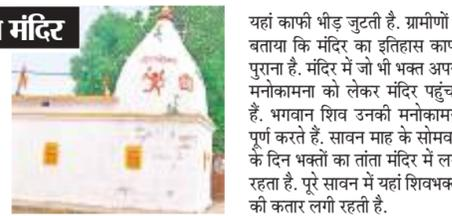 मंदिर
यहां काफी भीड़ जुटती है. ग्रामीणों
बताया कि मंदिर का इतिहास
पुराना है. मंदिर में जो भी भक्त
मनोकामना को लेकर मंदिर
हैं. भगवान शिव उनकी
पूर्ण करते हैं. सावन माह के
के दिन भक्तों का तांता मंदिर में
रहता है. पूरे सावन में यहां
की कतार लगी रहती है.